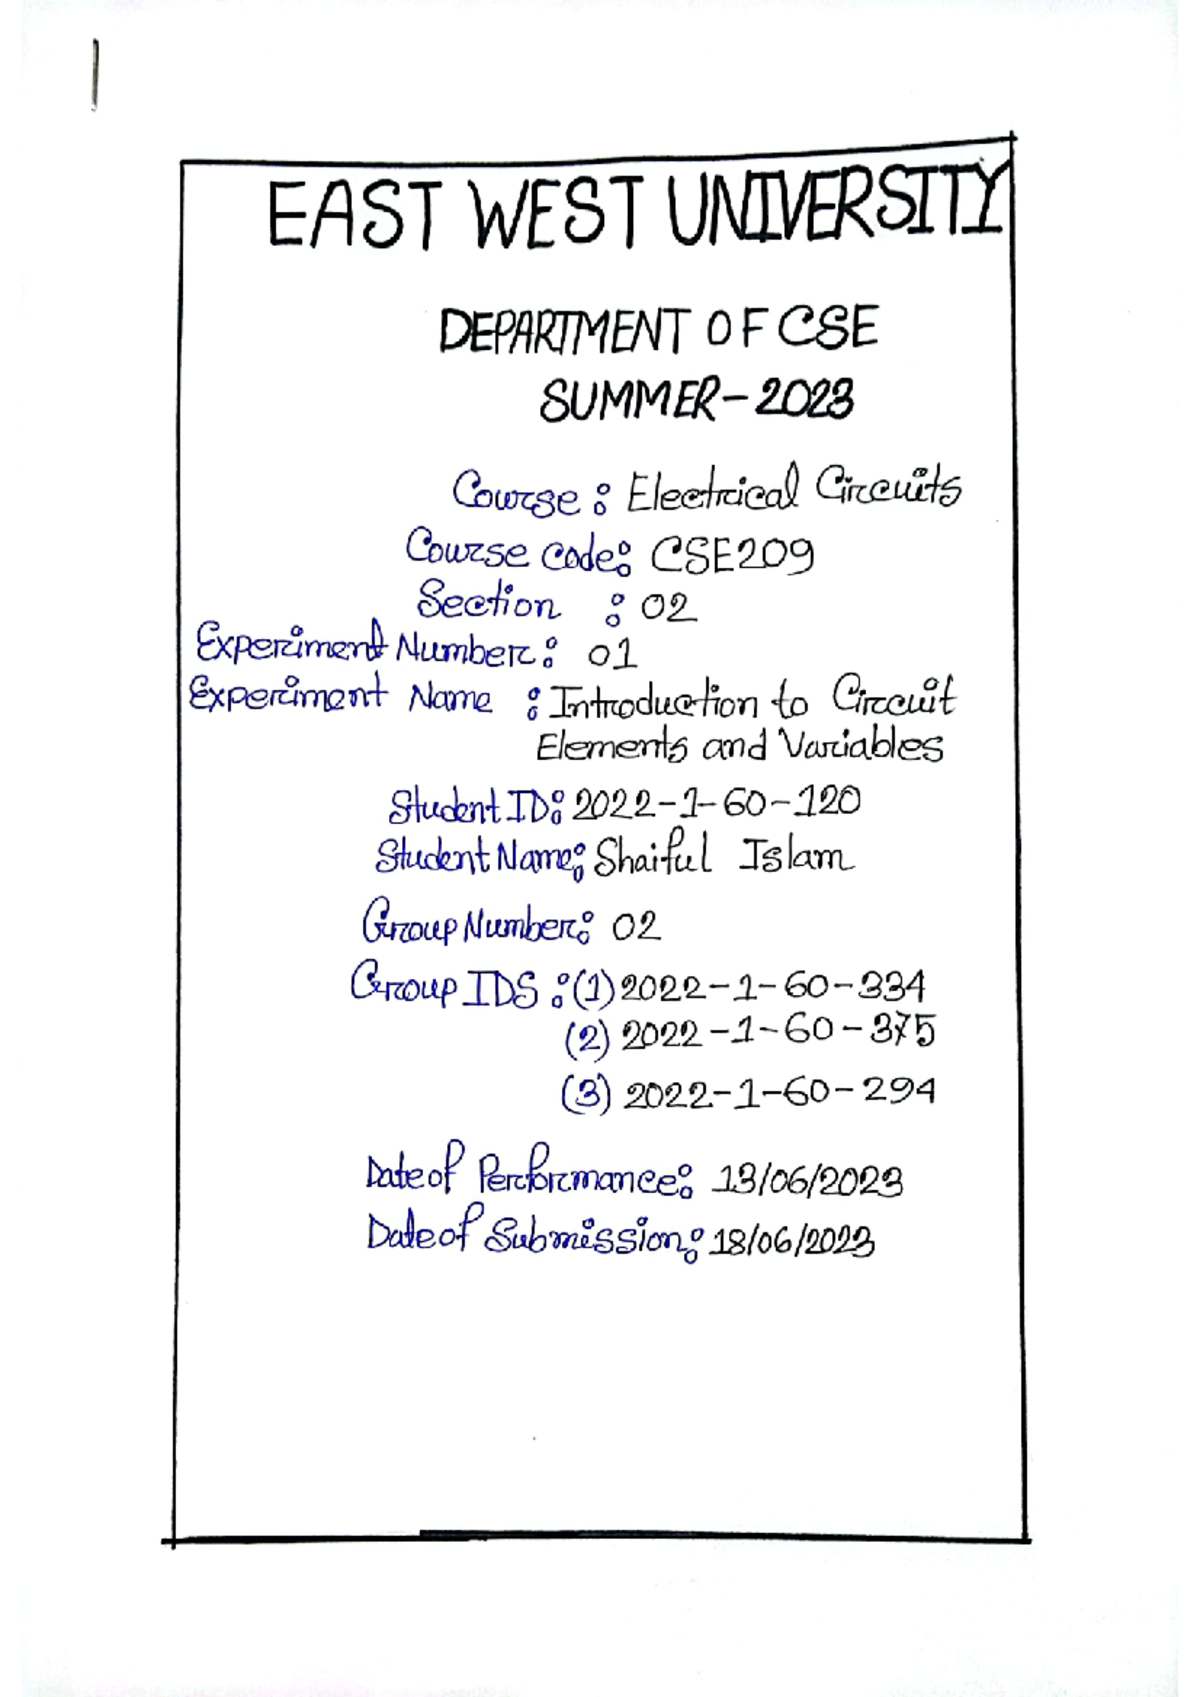 EAST WEST UNIVERSITY
DEPARTMENT OF CSE
SUMMER-2023
Course: Electrical Circuits
Course code: CSE209
Section : 02
Experiment Number: 01
Experiment Name : Introduction to Circuit
Elements and Variables
Student ID: 2022-1-60-120
Student Name: Shaiful Islam
Group Number: 02
Group IDS :(1) 2022-1-60-334
(2) 2022-1-60-375
(3) 2022-1-60-294
Date of Performance: 13/06/2023
Date of Submission: 18/06/2023